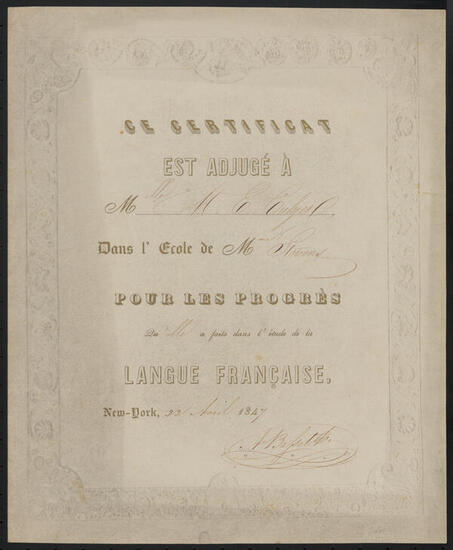 CE CERTIFICAT
EST ADJUGÉ À
Mlle M. E.
Dans l' Ecole de Mme
POUR LES PROGRÈS
Qu'elle a faits dans l'étude de la
LANGUE FRANÇAISE.
New-York, 22 Avril 1847